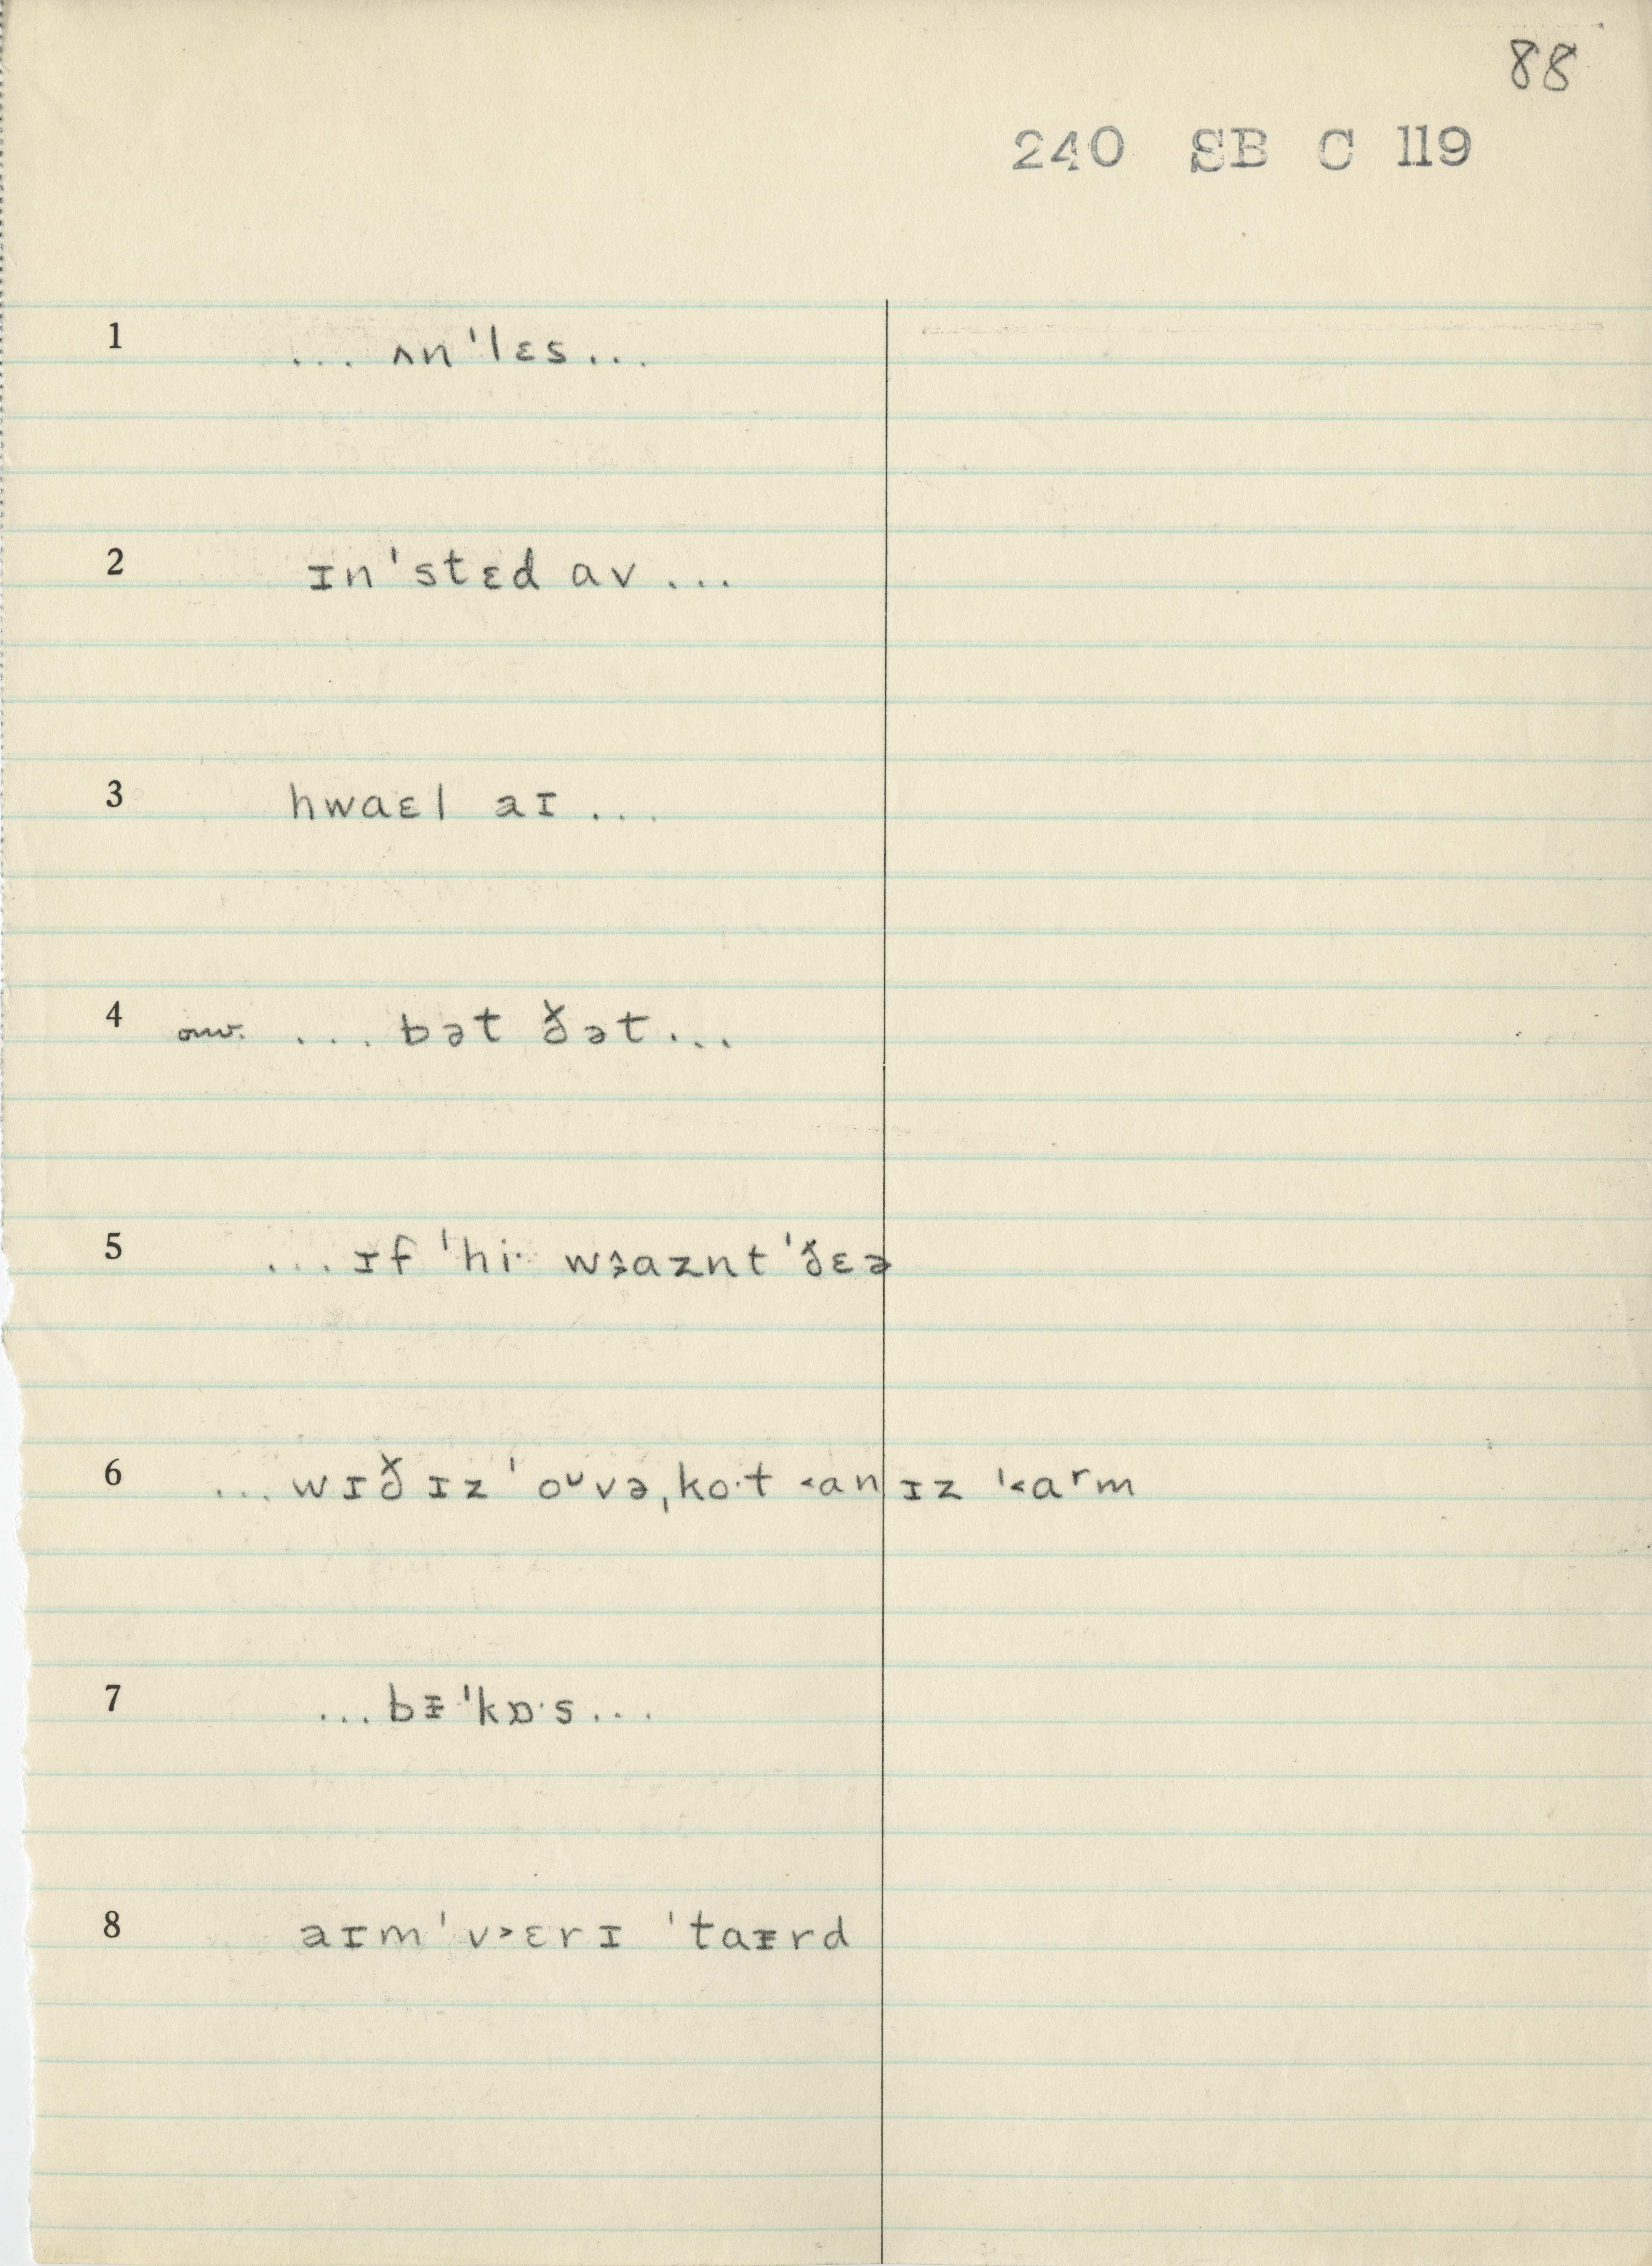 88
240 SB C 119
1 ... ʌnˈlɛs...
2 ɪnˈstɛd ɑv...
3 hwaɛl aɪ...
4 ... bət ðət...
5 ...ɪf ˈhi· wɜaznt ˈðɛə
6 ...wɪð ɪz ˈoᴜvə,ko·t ˂an ɪz ˈ˂aʳm
7 ...bᵻˈkɒ·s...
8 aɪm ˈv˃ɛrɪ ˈtaᵻrd